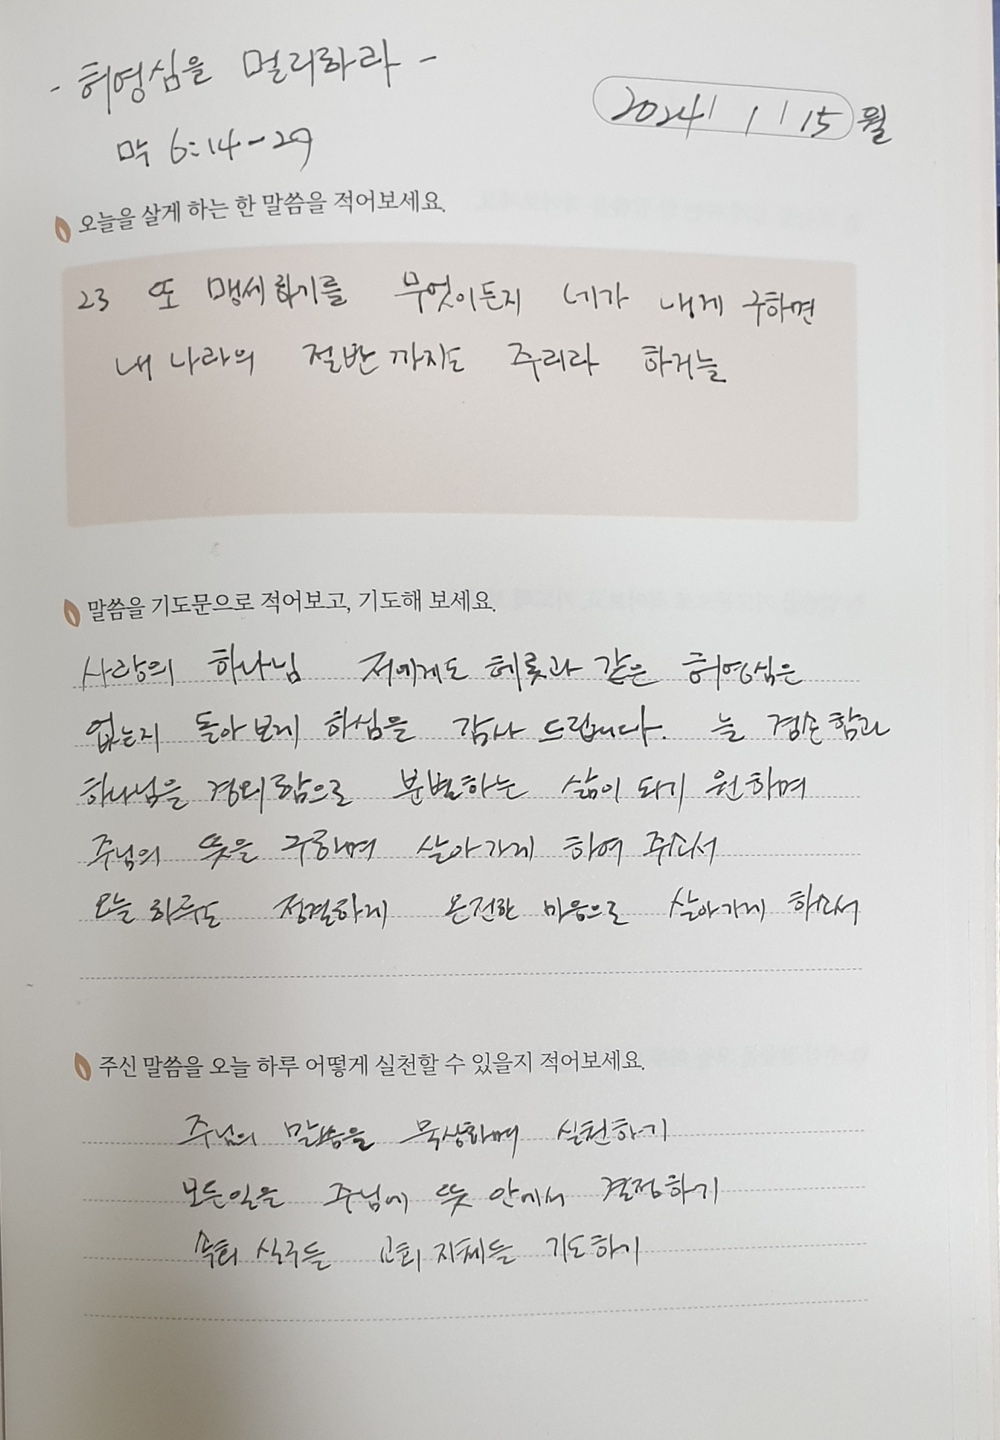 - 허영심을 멀리하라 -
2024 / 1 / 15 월
막 6:14-29
오늘을 살게 하는 한 말씀을 적어보세요.
23 또 맹세하기를 무엇이든지 네가 내게 구하면
내 나라의 절반까지도 주리라 하거늘
말씀을 기도문으로 적어보고, 기도해 보세요.
사랑의 하나님 저에게도 헤롯과 같은 허영심은
없는지 돌아보게 하심을 감사드립니다. 늘 겸손함과
하나님을 경외함으로 분별하는 삶이 되기 원하며
주님의 뜻을 구하며 살아가게 하여 주소서
오늘 하루도 정결하게 온전한 마음으로 살아가게 하소서
주신 말씀을 오늘 하루 어떻게 실천할 수 있을지 적어보세요.
주님의 말씀을 묵상하며 실천하기
모든일을 주님에 뜻 안에서 결정하기
속회 식구들 교회 지체들 기도하기